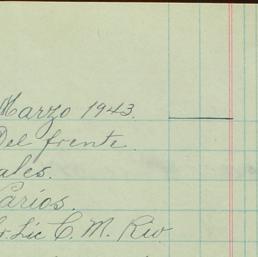 Marzo 1943.
Del frente.
ales.
arios.
Lic C. M. Rio